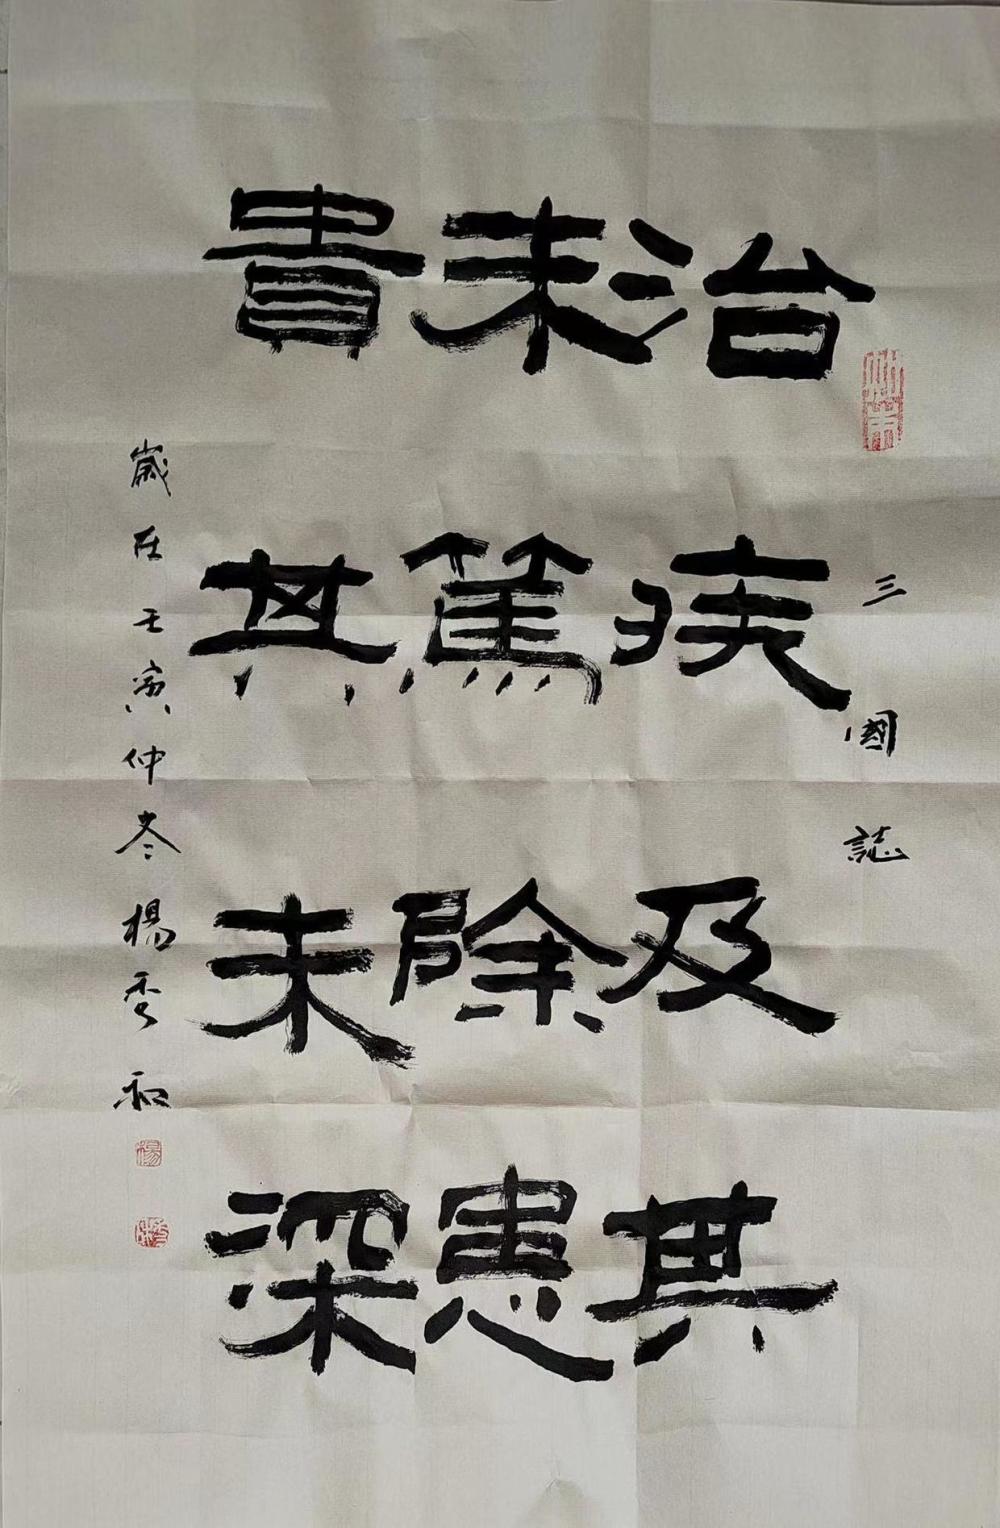 三國誌
治疾及其
未篤除患
貴其未深
歲在壬寅仲冬楊秀
楊